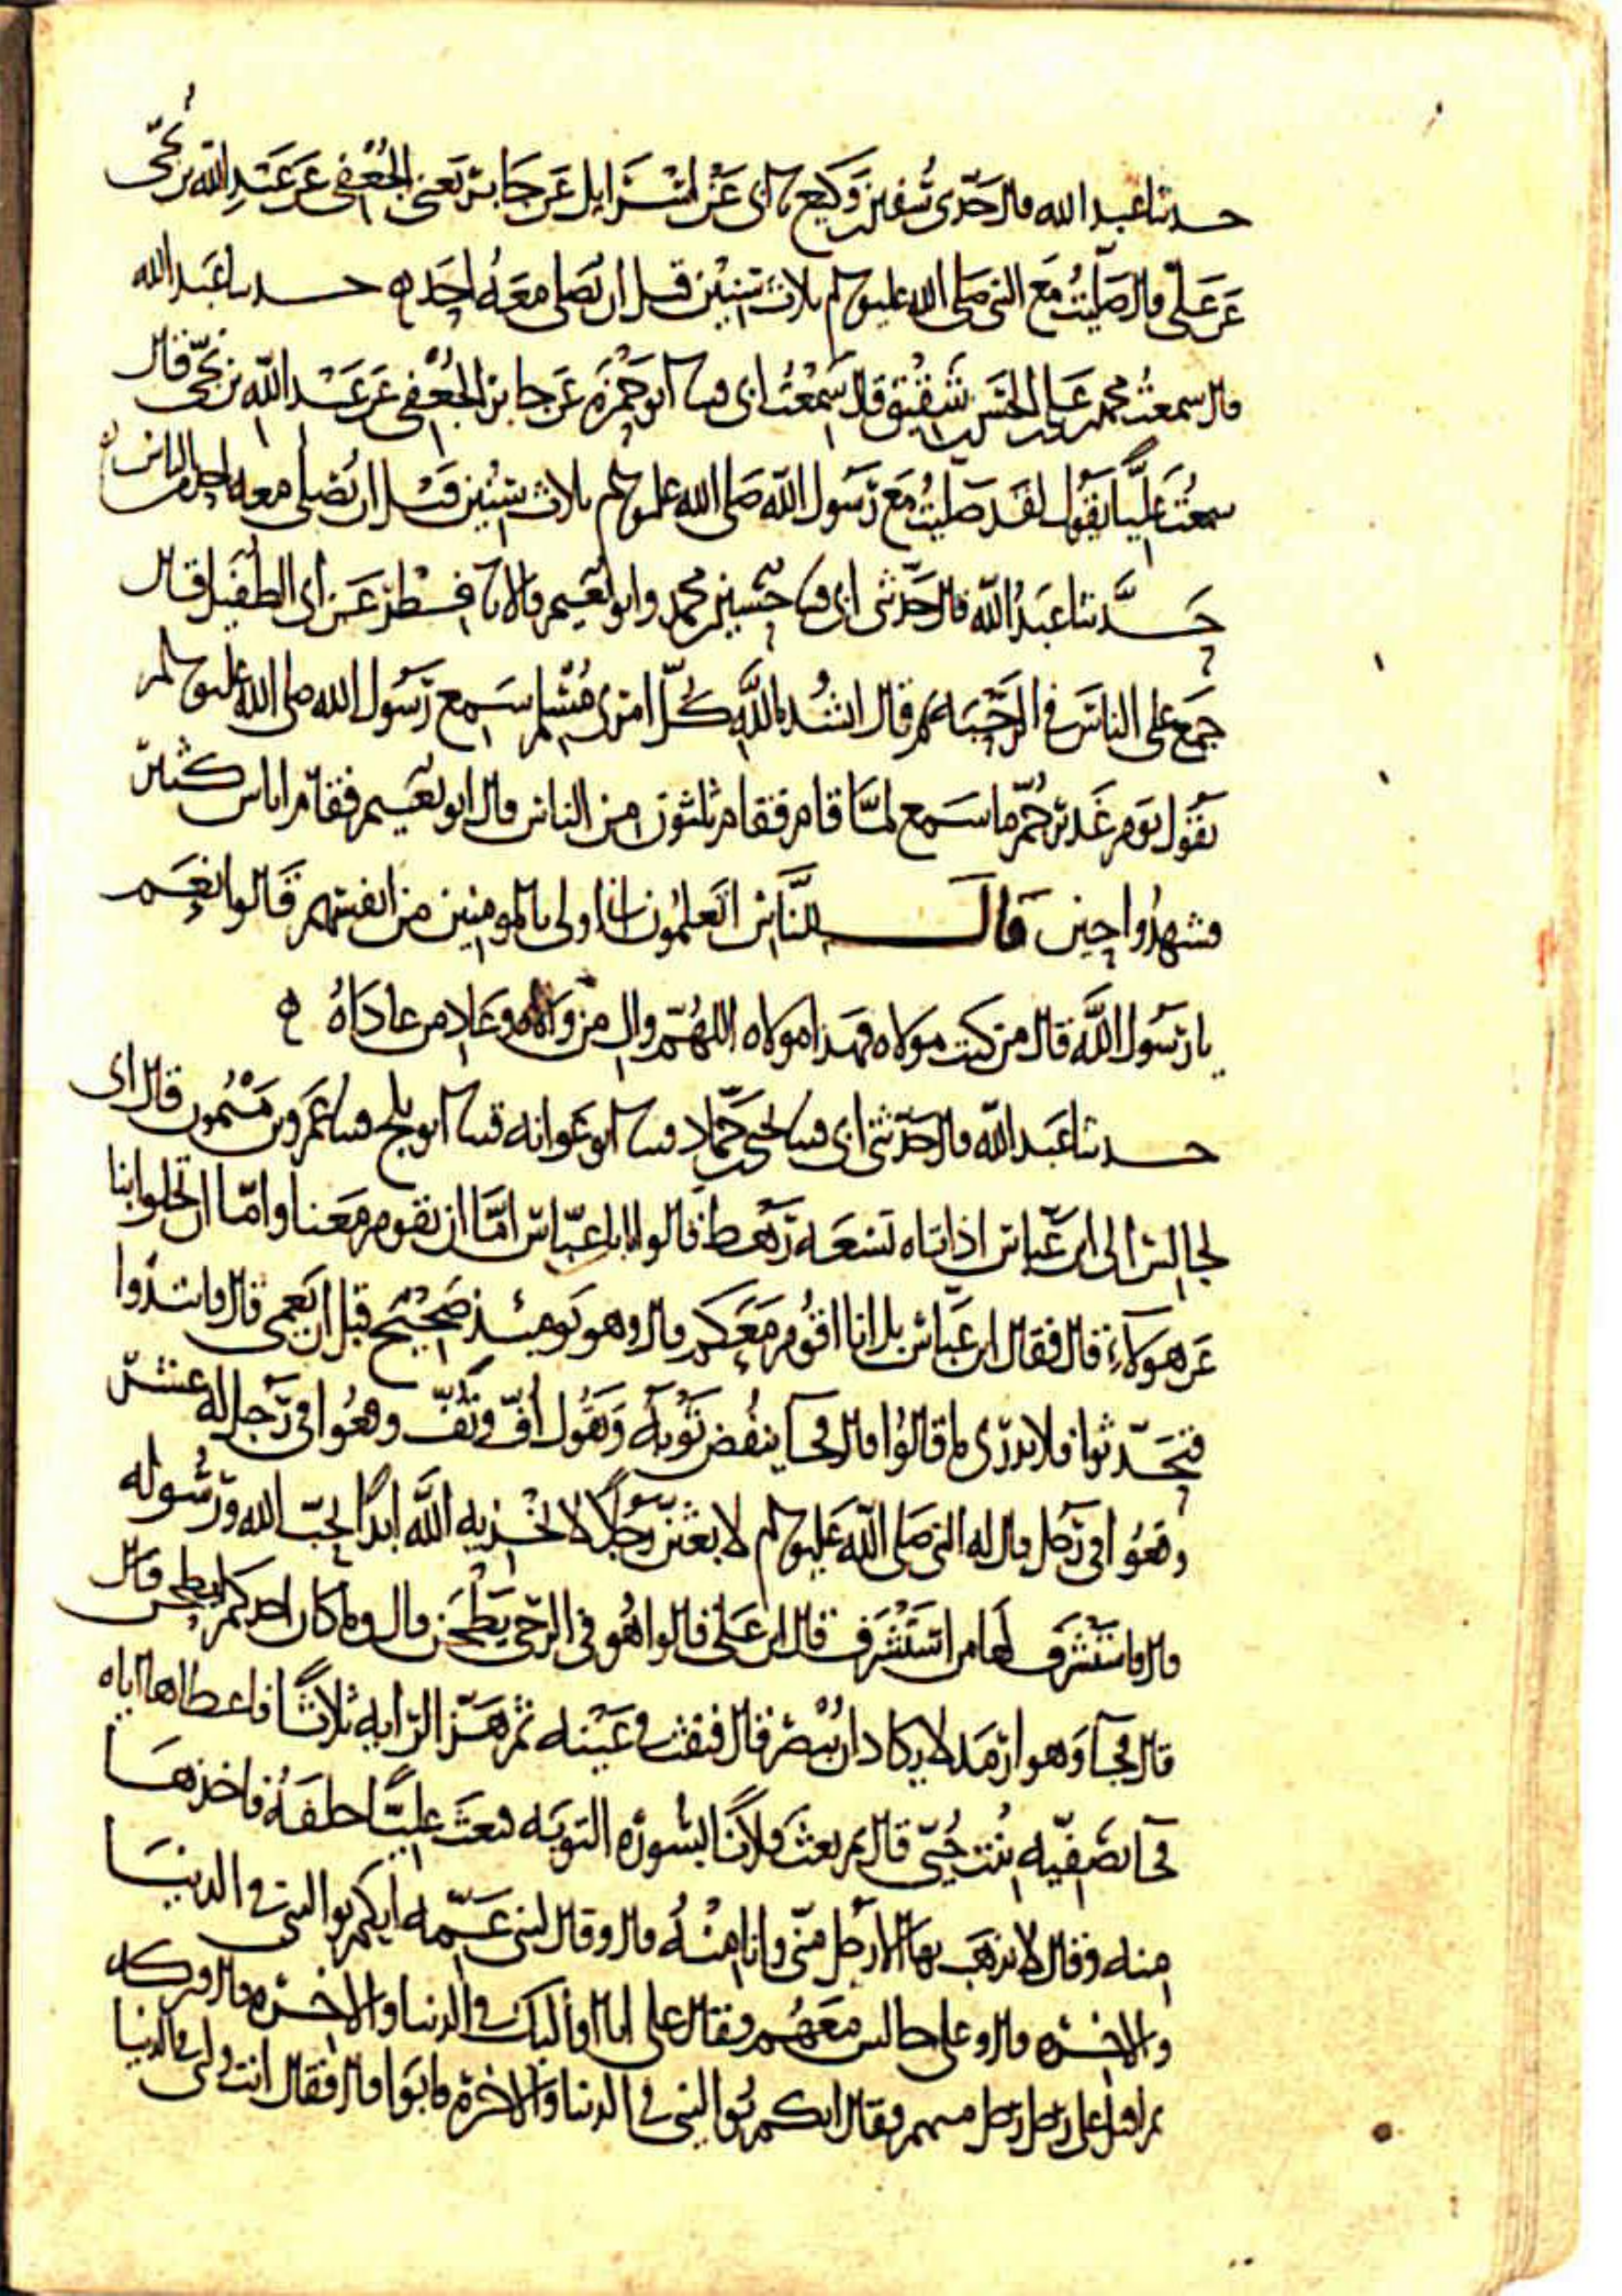 حدثنا عبد الله قال حدثني سفين بن وكيع نا ابى عن اسرايل عن جابر يعنى الجعفى عن عبد الله بن نجى
عن على قال صليت مع النبى صلى الله عليه وسلم ثلاث سنين قبل ان يصلى معه احد ه حدثنا عبد الله
قال سمعت محمد بن على بن الحسن بن شقيق قال سمعت ابى قثنا ابو حمزة عن جابر الجعفى عن عبد الله بن نجى قال
سمعت عليا يقول لقد صليت مع رسول الله صلى الله عليه وسلم ثلاث سنين قبل ان يصلى معه احد من الناس
حدثنا عبد الله قال حدثنى ابى قثنا حسين بن محمد وابو نعيم قالا نا فطر عن ابى الطفيل قال
جمع على الناس فى الرحبة ثم قال انشد بالله كل امرئ مسلم سمع رسول الله صلى الله عليه وسلم
يقول يوم غدير خم ما سمع لما قام فقام ثلثون من الناس قال ابو نعيم فقام اناس كثير
فشهدوا حين قال للناس اتعلمون انى اولى بالمومنين من انفسهم قالوا نعم
يا رسول الله قال من كنت مولاه فهذا مولاه اللهم وال من والاه وعاد من عاداه ه
حدثنا عبد الله قال حدثنى ابى قثنا يحيى بن حماد قثنا ابو عوانه قثنا ابو بلج قثنا عمرو بن ميمون قال انى
لجالس الى ابن عباس اذ اتاه تسعه رهط قالوا يابا عباس اما ان تقوم معنا واما ان تخلوا بنا
عن هولاء قال فقال ابن عباس بل انا اقوم معكم قال وهو يوميذ صحيح قبل ان يعمى قال فابتدوا
فتحدثوا فلا ندرى ما قالوا قال فجا ينفض ثوبه ويقول اف وتف وقعوا فى رجل له عشر
وقعوا فى رجل قال له النبى صلى الله عليه وسلم لابعثن رجلا لا يخزيه الله ابدا يحب الله ورسوله
قال فاستشرف لها من استشرف قال اين على قالوا هو فى الرحى يطحن قال وما كان احدكم ليطحن قال
قال فجآ وهو ارمد لا يكاد ان يبصر قال فنفث فى عينه ثم هز الرايه ثلاثا فاعطاها اياه
فجآ بصفيه بنت حيى قال ثم بعث فلانا بسورة التوبه فبعث عليا خلفه فاخذها
منه وقال لا يذهب بها الا رجل منى وانا منه قال وقال لبنى عمه ايكم يوالينى فى الدنيا
والاخرة قال وعلى جالس معهم فقال على انا اواليك فى الدنيا والاخرة قال فتركه
ثم اقبل على رجل رجل منهم فقال ايكم يوالينى فى الدنيا والاخرة فابوا قال فقال انت وليى فى الدنيا